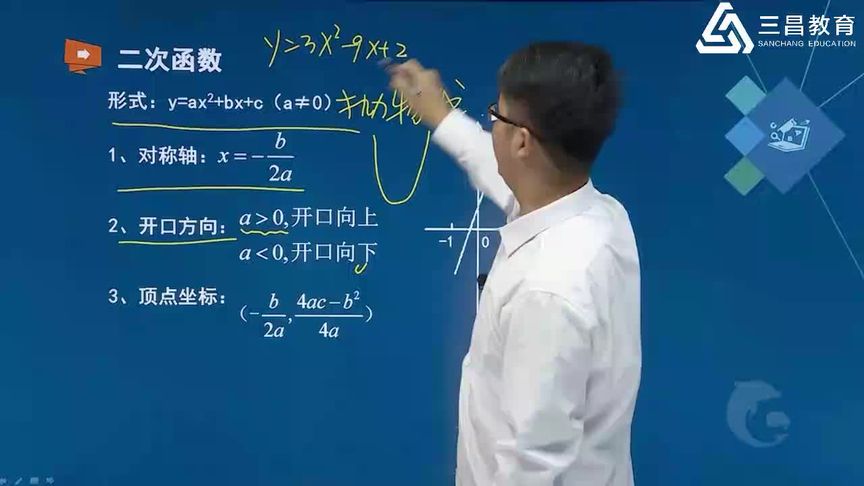 三昌教育
SANCHANG EDUCATION
y=3x²-9x+2
二次函数
形式：y=ax²+bx+c（a≠0）抛物线
1、对称轴：x=-b/2a
2、开口方向：a>0,开口向上
a<0,开口向下
-1 0
3、顶点坐标：(-b/2a, 4ac-b²/4a)